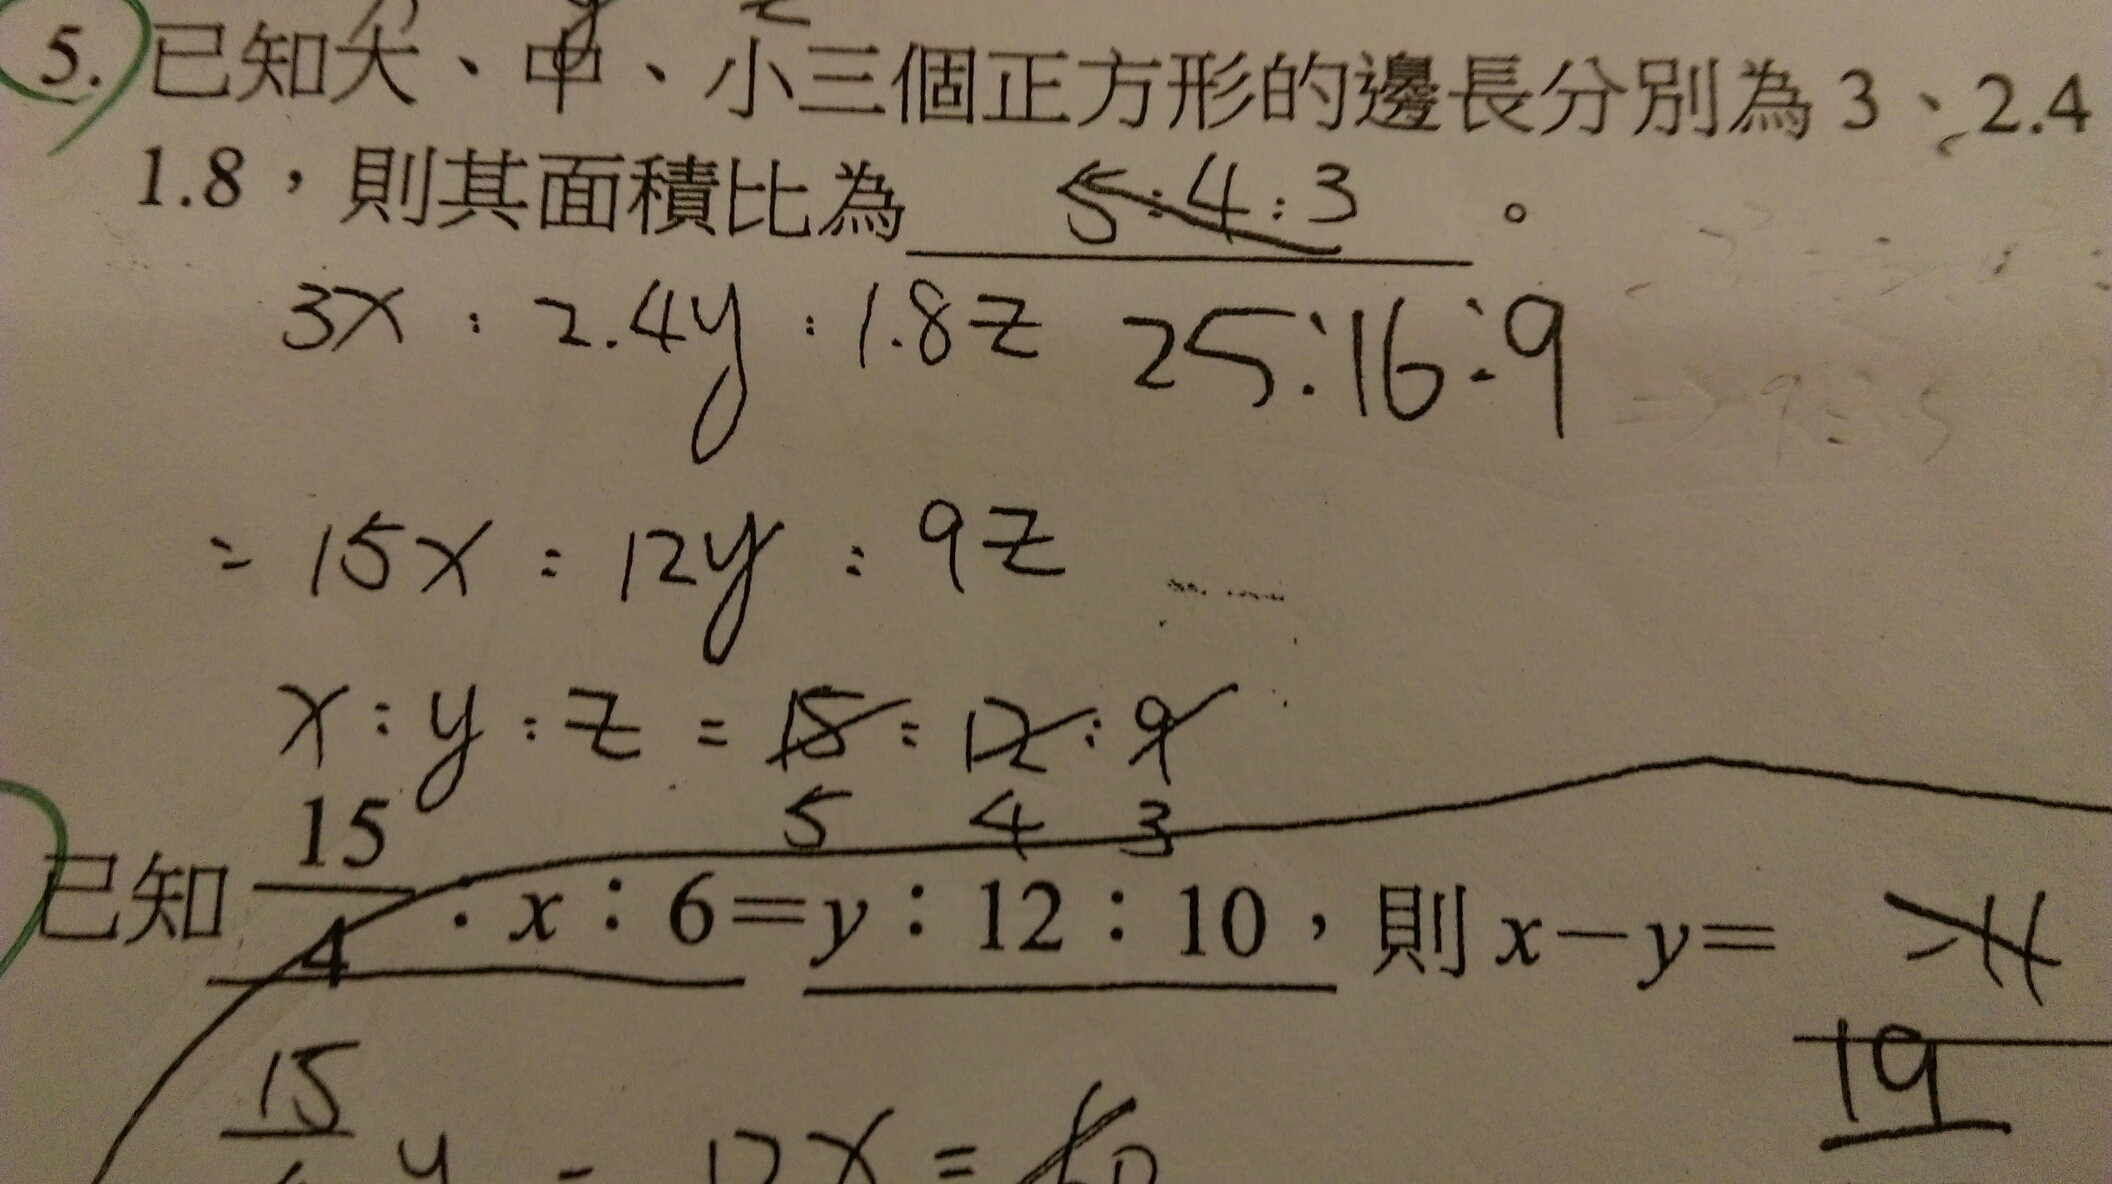 5. 已知大、中、小三個正方形的邊長分別為 3、2.4
1.8，則其面積比為 5:4:3 。
3x : 2.4y : 1.8z 25:16:9
= 15x : 12y : 9z
x : y : z = 15 : 12 : 9
5 4 3
已知 15/4 : x : 6 = y : 12 : 10，則 x − y =
19
15
y - 12x =